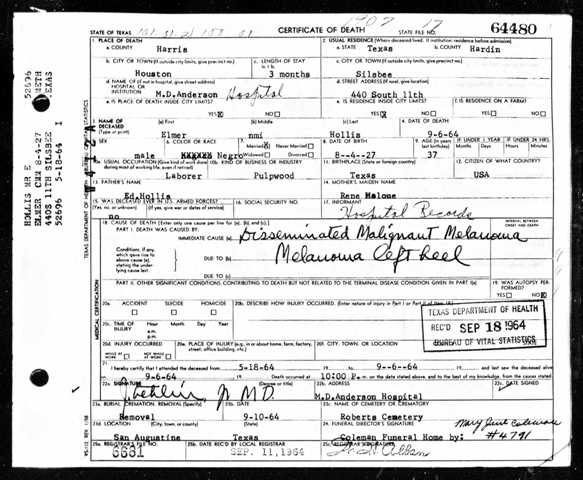 1902 17
STATE OF TEXAS CERTIFICATE OF DEATH STATE FILE NO. 64480
1. PLACE OF DEATH 2. USUAL RESIDENCE (Where deceased lived. If institution: residence before admission)
a. COUNTY Harris a. STATE Texas b. COUNTY Hardin
b. CITY OR TOWN (If outside city limits, give precinct no.) c. LENGTH OF STAY in 1 b. c. CITY OR TOWN (If outside city limits, give precinct no.)
Houston 3 months Silsbee
d. NAME OF (If not in hospital, give street address) HOSPITAL OR INSTITUTION d. STREET ADDRESS (If rural, give location)
M.D.Anderson Hospital 440 South 11th
e. IS PLACE OF DEATH INSIDE CITY LIMITS? e. IS RESIDENCE INSIDE CITY LIMITS? f. IS RESIDENCE ON A FARM?
YES X NO YES X NO YES NO
3. NAME OF DECEASED (Type or print) (a) First (b) Middle (c) Last 4. DATE OF DEATH
Elmer nmi Hollis 9-6-64
5. SEX 6. COLOR OR RACE 7. Married Never Married Widowed Divorced 8. DATE OF BIRTH 9. AGE (In years last birthday) IF UNDER 1 YEAR IF UNDER 24 HRS.
male Negro 8-4-27 37
10a. USUAL OCCUPATION (Give kind of work done during most of working life, even if retired) 10b. KIND OF BUSINESS OR INDUSTRY 11. BIRTHPLACE (State or foreign country) 12. CITIZEN OF WHAT COUNTRY?
Laborer Pulpwood Texas USA
13. FATHER'S NAME 14. MOTHER'S MAIDEN NAME
Ed.Hollis Rene Malone
15. WAS DECEASED EVER IN U.S. ARMED FORCES? 16. SOCIAL SECURITY NO. 17. INFORMANT
(Yes, no, or unknown) (If yes, give war or dates of service)
no Hospital Records
18. CAUSE OF DEATH [Enter only one cause per line for (a), (b), and (c).] INTERVAL BETWEEN ONSET AND DEATH
PART I. DEATH WAS CAUSED BY:
IMMEDIATE CAUSE (a) Disseminated Malignant Melanoma
Conditions, if any, which gave rise to above cause (a), stating the underlying cause last.
DUE TO (b) Melanoma left heel
DUE TO (c)
PART II. OTHER SIGNIFICANT CONDITIONS CONTRIBUTING TO DEATH BUT NOT RELATED TO THE TERMINAL DISEASE CONDITION GIVEN IN PART I (a) 19. WAS AUTOPSY PERFORMED?
YES NO X
20a. ACCIDENT SUICIDE HOMICIDE 20b. DESCRIBE HOW INJURY OCCURRED. (Enter nature of injury in Part I or Part II of item 18.)
20c. TIME OF INJURY Hour a.m. p.m. Month Day Year
TEXAS DEPARTMENT OF HEALTH
REC'D SEP 18 1964
BUREAU OF VITAL STATISTICS
20d. INJURY OCCURRED WHILE AT WORK NOT WHILE AT WORK 20e. PLACE OF INJURY (e.g., in or about home, farm, factory, street, office building, etc.) 20f. CITY, TOWN, OR LOCATION
21. I hereby certify that I attended the deceased from 5-18-64 to 9--6-64 and last saw the deceased alive
9-6-64 Death occurred at 10:00 P. m. on the date stated above, and to the best of my knowledge, from the causes stated
22a. SIGNATURE M.D. 22b. ADDRESS 22c. DATE SIGNED
M.D.Anderson Hospital
23a. BURIAL, CREMATION, REMOVAL (Specify) 23b. DATE 23c. NAME OF CEMETERY OR CREMATORY
Removal 9-10-64 Roberts Cemetery
23d. LOCATION (City, town, or county) (State) 24. FUNERAL DIRECTOR'S SIGNATURE Mary June Coleman
San Augustine Texas Coleman Funeral Home by: #4791
25a. REGISTRAR'S FILE NO. 25b. DATE REC'D BY LOCAL REGISTRAR 25c. REGISTRAR'S SIGNATURE
6631 SEP. 11, 1964
TEXAS DEPARTMENT OF HEALTH
MEDICAL CERTIFICATION
52696 METH TEXAS
I
HOLLIS MR E
ELMER CHM 8-4-27
440S 11TH SILSBEE
52696 5-18-64